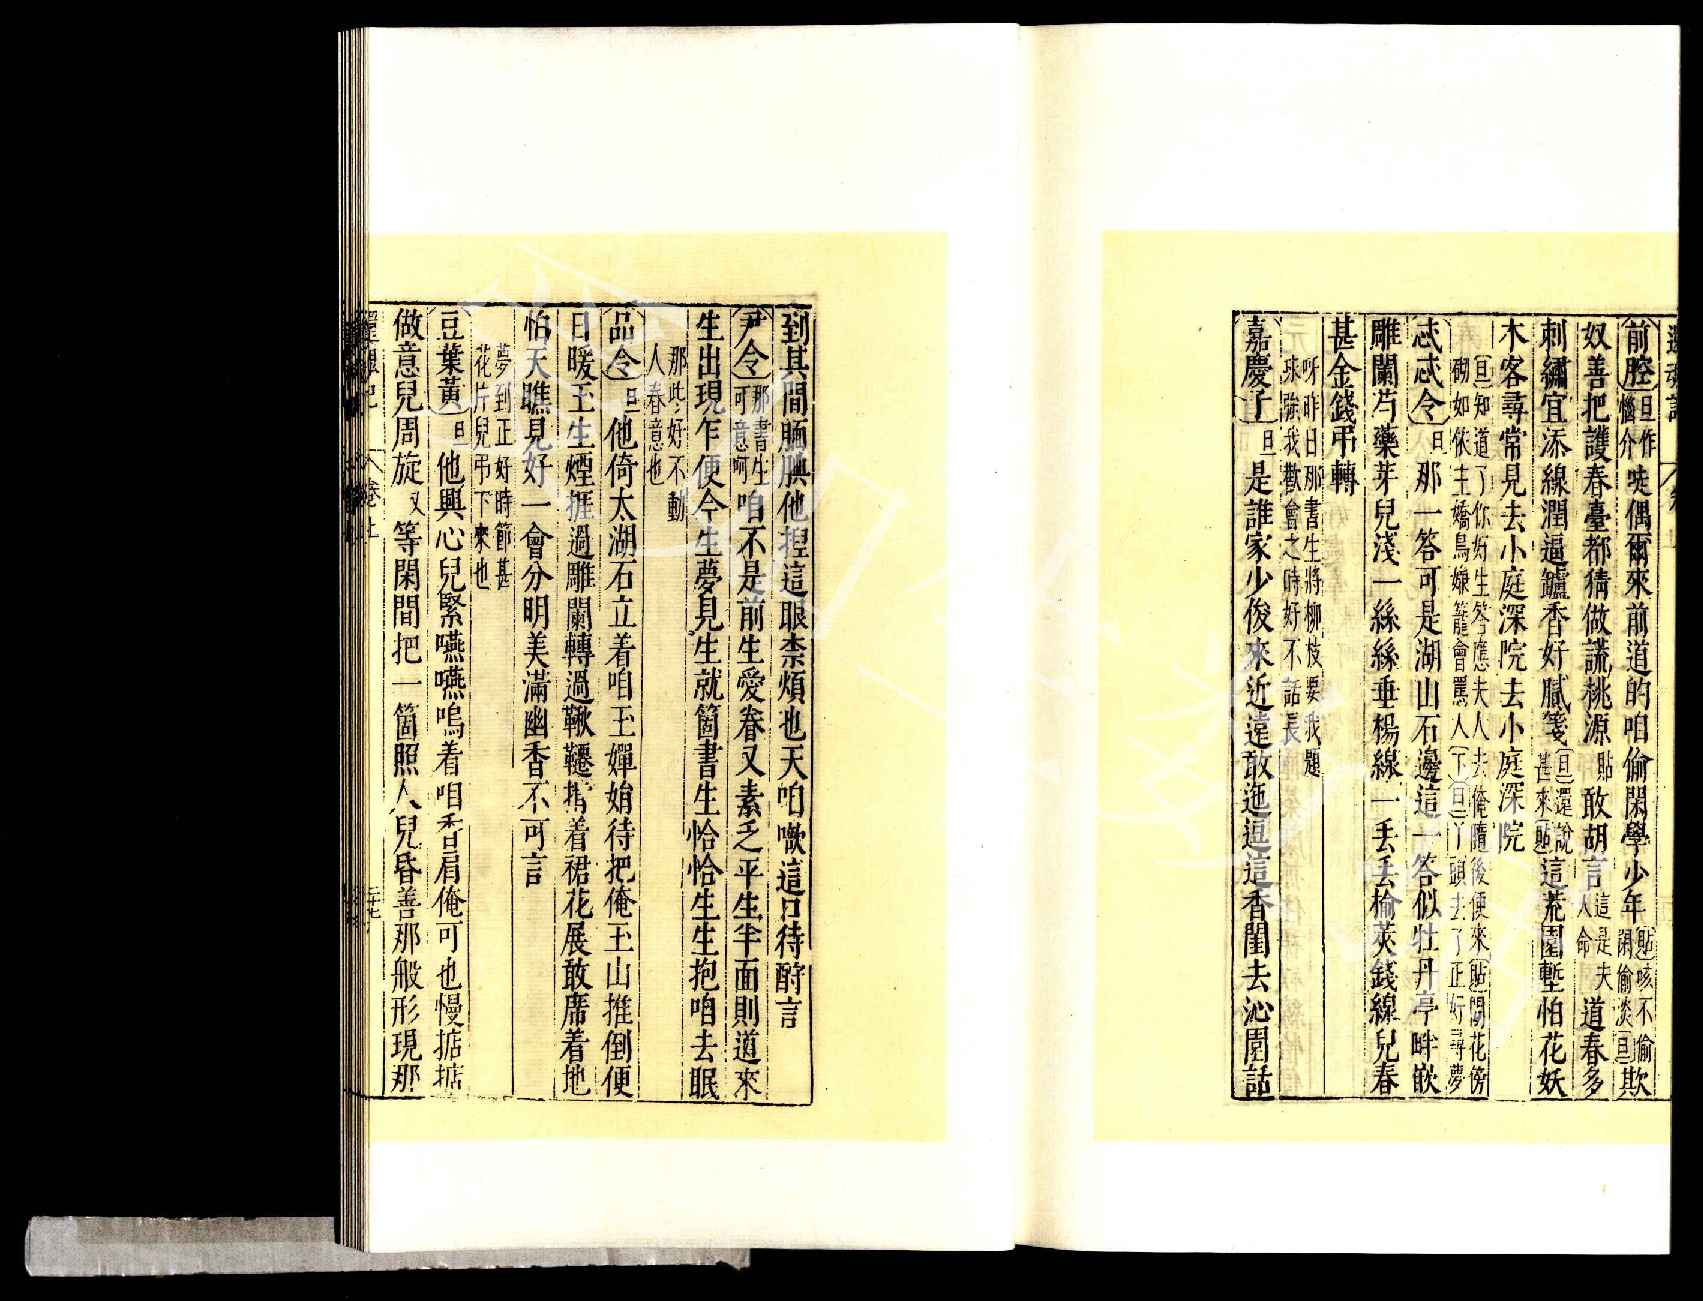 還魂記
前腔旦作惱介唗偶爾來前道的咱偷閑學少年貼咳不偷閑偷淡旦欺
奴善把護春臺都猜做謊桃源貼敢胡言這是夫人命道春多
刺繡宜添線潤逼鑪香好膩箋旦還說甚來貼這荒園塹怕花妖
木客尋常見去小庭深院去小庭深院
旦知道了你好生答應夫人去俺隨後便來貼閒花傍
砌如依主嬌鳥嫌籠會罵人下旦丫頭去了正好尋夢
忒忒令旦那一答可是湖山石邊這一答似牡丹亭畔嵌
雕闌芍藥芽兒淺一絲絲垂楊線一丟丟榆莢錢線兒春
甚金錢弔轉
呀昨日那書生將柳枝要我題
咏強我歡會之時好不話長
嘉慶子旦是誰家少俊來近遠敢迤逗這香閨去沁園話
到其間腼腆他揑這眼柰煩也天咱噷這口待酧言
尹令那書生可意呵咱不是前生愛眷又素乏平生半面則道來
生出現乍便今生夢見生就箇書生恰恰生生抱咱去眠
那些好不動
人春意也
品令旦他倚太湖石立着咱玉嬋娟待把俺玉山推倒便
日暖玉生煙捱過雕闌轉過鞦韆掯着裙花展敢席着地
怕天瞧見好一會分明美滿幽香不可言
夢到正好時節甚
花片兒弔下來也
豆葉黃旦他興心兒緊嚥嚥嗚着咱香肩俺可也慢掂掂
做意兒周旋又等閑間把一箇照人兒昏善那般形現那
還魂記 卷上 二十七